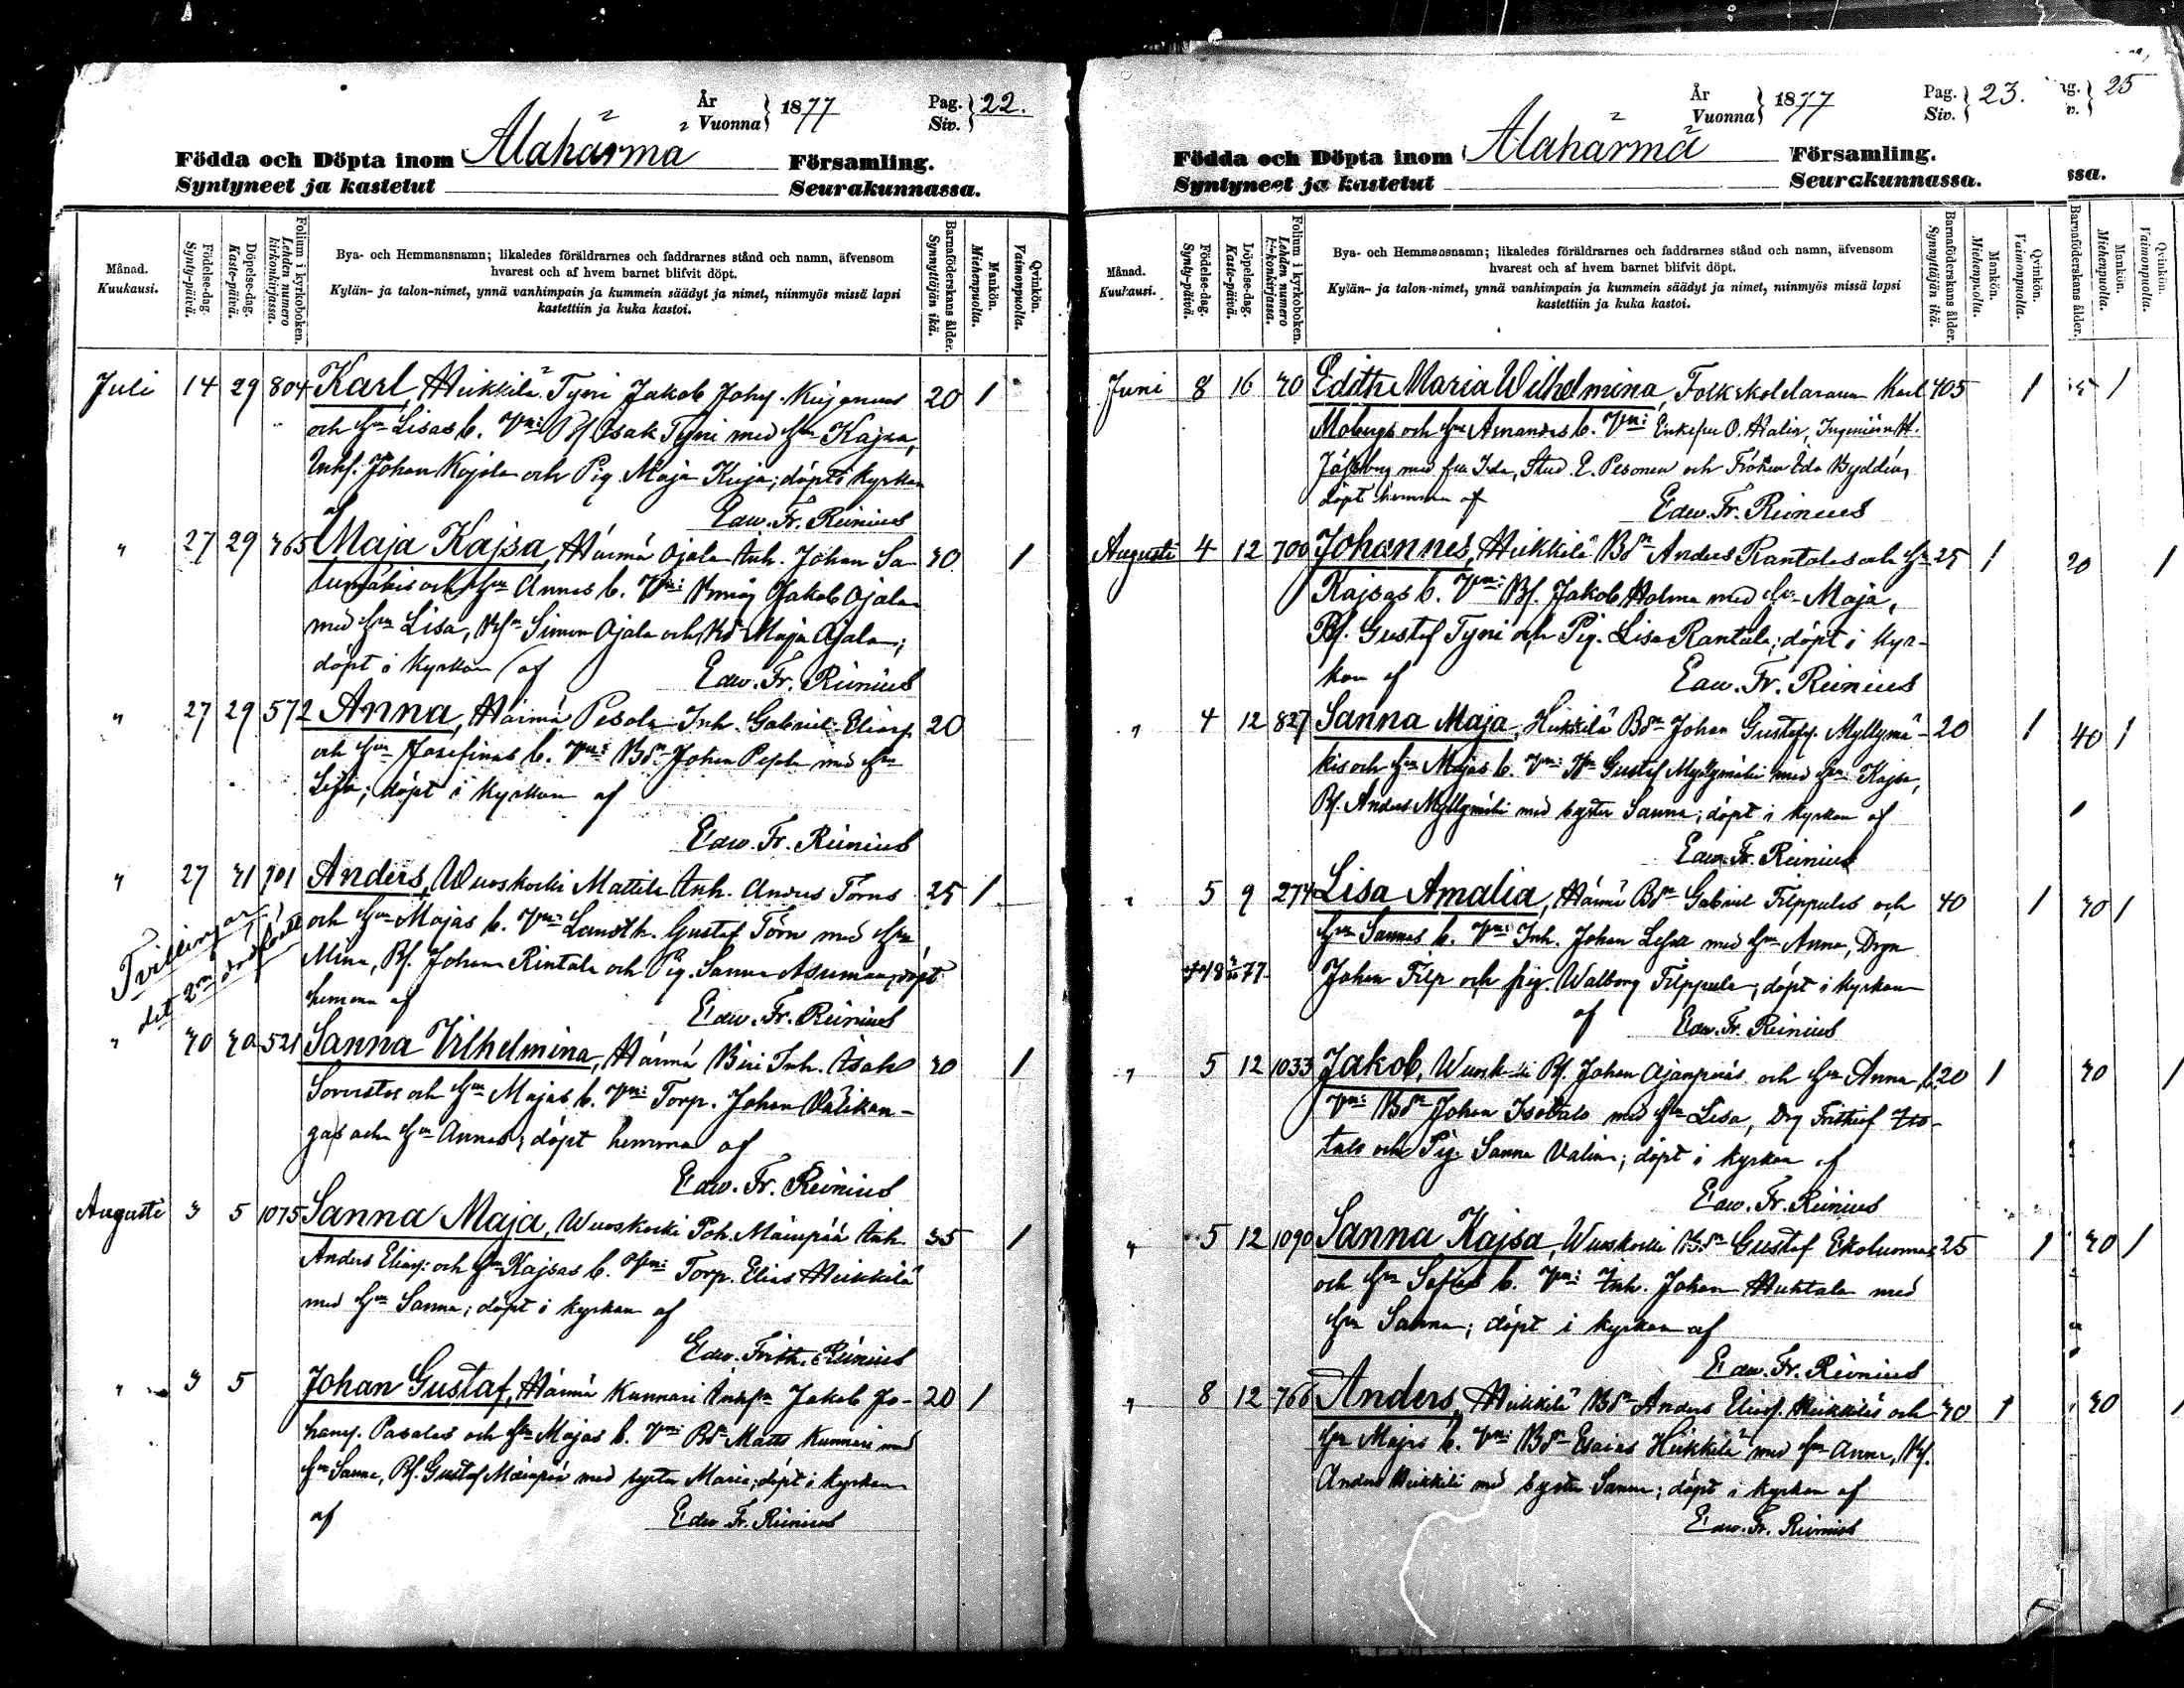 År
Vuonna } 1877
Pag.
Siv. } 22.
Födda och Döpta inom Alahärmä Församling.
Syntyneet ja kastetut Seurakunnassa.
Månad.
Kuukausi.
Födelse-dag.
Synty-päivä.
Döpelse-dag.
Kaste-päivä.
Folium i kyrkoboken.
Lehden numero kirkonkirjassa.
Bya- och Hemmansnamn; likaledes föräldrarnes och faddrarnes stånd och namn, äfvensom
hvarest och af hvem barnet blifvit döpt.
Kylän- ja talon-nimet, ynnä vanhimpain ja kummein säädyt ja nimet, niinmyös missä lapsi
kastettiin ja kuka kastoi.
Barnaföderskans ålder.
Synnyttäjän ikä.
Mankön.
Miehenpuolta.
Qvinkön.
Vaimonpuolta.
Juli 14 29 804 Karl, Heikkilä Tyni Jakob Johs. 20 1
och hu Lisas b. Vn: Isak Tyni med hu Kajsa,
Inhs. Johan Kojola och Pig. Maja Kuja; döpt i Kyrkan
af Edw. Fr. Reinius
" 27 29 765 Maja Kajsa, Härmä Ojala Inh. Johan Sa- 30 1
lumäkis och hu Annas b. Vn: Jakob Ojala
med hu Lisa, Simon Ojala och Maja Ojala;
döpt i Kyrkan af Edw. Fr. Reinius
" 27 29 572 Anna, Härmä Pesola Inh. Gabriel Eliass. 20
och hu Josefinas b. Vn: Bdn Johan Pesola med hu
Lisa; döpt i Kyrkan af
Edw. Fr. Reinius
" 27 31 701 Anders, Wuoskoski Mattila Inh. Anders Törns 25 1
Tvillingar,
det 2ra
och hu Majas b. Vn: Gustaf Törn med hu
Mina, Bs. Johan Rintala och Pig. Sanna Assuman; döpt
hemma af Edw. Fr. Reinius
" 30 30 521 Sanna Vilhelmina, Härmä Biri Inh. Isak 30 1
och hu Majas b. Vn: Torp. Johan Välikan-
gas och hu Annas; döpt hemma af
Edw. Fr. Reinius
Augusti 3 5 1075 Sanna Maja, Wuoskoski Poh. Mäenpää Inh. 35 1
Anders Eliass. och hu Kajsas b. Vn: Torp. Elias Heikkilä
med hu Sanna; döpt i kyrkan af
Edw. Frith. Reinius
" 3 5 Johan Gustaf, Härmä Kunnari Jakob Jo- 20 1
hans. Pasalas och hu Majas b. Vn: Bdn Matts Kunnari med
hu Sanna, Bs. Gustaf Mäenpää med syster Maria; döpt i kyrkan
af Edw. Fr. Reinius
År
Vuonna } 1877
Pag.
Siv. } 23.
Födda och Döpta inom Alahärmä Församling.
Syntyneet ja kastetut Seurakunnassa.
Månad.
Kuukausi.
Födelse-dag.
Synty-päivä.
Döpelse-dag.
Kaste-päivä.
Folium i kyrkoboken.
Lehden numero kirkonkirjassa.
Bya- och Hemmansnamn; likaledes föräldrarnes och faddrarnes stånd och namn, äfvensom
hvarest och af hvem barnet blifvit döpt.
Kylän- ja talon-nimet, ynnä vanhimpain ja kummein säädyt ja nimet, niinmyös missä lapsi
kastettiin ja kuka kastoi.
Barnaföderskans ålder.
Synnyttäjän ikä.
Mankön.
Miehenpuolta.
Qvinkön.
Vaimonpuolta.
Juni 8 16 Edith Maria Wilhelmina, Folkskolelararen Karl 1
Mobergs och hu Amandas b. Vn: Enkefru O. Halin, Ingeniörn H.
med fru Ida, Stud. E. Pesonen och Fröken Ida Byddén,
döpt hemma af Edw. Fr. Reinius
Augusti 4 12 700 Johannes, Heikkilä Bdn Anders Rantalas och hu 25 1
Kajsas b. Vn: Bs. Jakob Holma med hu Maja,
Bs. Gustaf Tyni och Pig. Lisa Rantala; döpt i Kyr-
kan af Edw. Fr. Reinius
" 4 12 827 Sanna Maja, Heikkilä Bdn Johan Gustafs. Myllymä- 20 1
kis och hu Majas b. Vn: Gustaf Myllymäki med hu Kajsa,
Bs. Anders Myllymäki med syster Sanna; döpt i kyrkan af
Edw. Fr. Reinius
" 5 9 274 Lisa Amalia, Härmä Bdn Gabriel Filppulas och 40 1
hu Sannas b. Vn: Inh. Johan med hu Anna, Drgn
Johan Filp och pig. Walborg Filppula; döpt i kyrkan
af Edw. Fr. Reinius
" 5 12 1033 Jakob, Bs. Johan Ajanpääs och hu Anna b. 20 1
Vn: Bdn Johan Isotalo med hu Lisa, Drg Frithiof Iso-
talo och Pig. Sanna Valin; döpt i kyrkan af
Edw. Fr. Reinius
" 5 12 1090 Sanna Kajsa, Wuoskoski Bdn Gustaf Ekoluomas 25 1
och hu Sofias b. Vn: Inh. Johan Huhtala med
hu Sanna; döpt i kyrkan af
Edw. Fr. Reinius
" 8 12 766 Anders, Heikkilä Bdn Anders Eliass. Heikkiläs och 30 1
hu Majas b. Vn: Bdn Esaias Heikkilä med hu Anna, Bs.
Anders Heikkilä med syster Sanna; döpt i kyrkan af
Edw. Fr. Reinius
25
ssa.
Barnaföderskans ålder.
Mankön.
Miehenpuolta.
Qvinkön.
Vaimonpuolta.
20 1
40 1
30 1
30 1
30 1
30